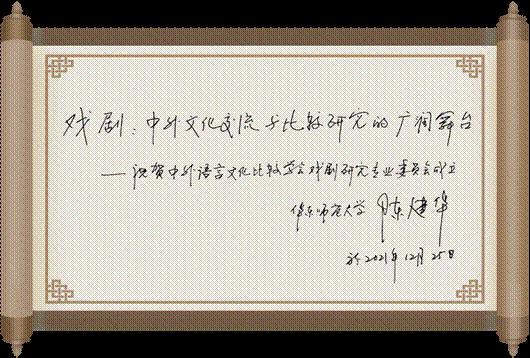 戏剧：中外文化交流与比较研究的广阔舞台
——祝贺中外语言文化比较学会戏剧研究专业委员会成立
华东师范大学 陈建华
於2021年12月25日